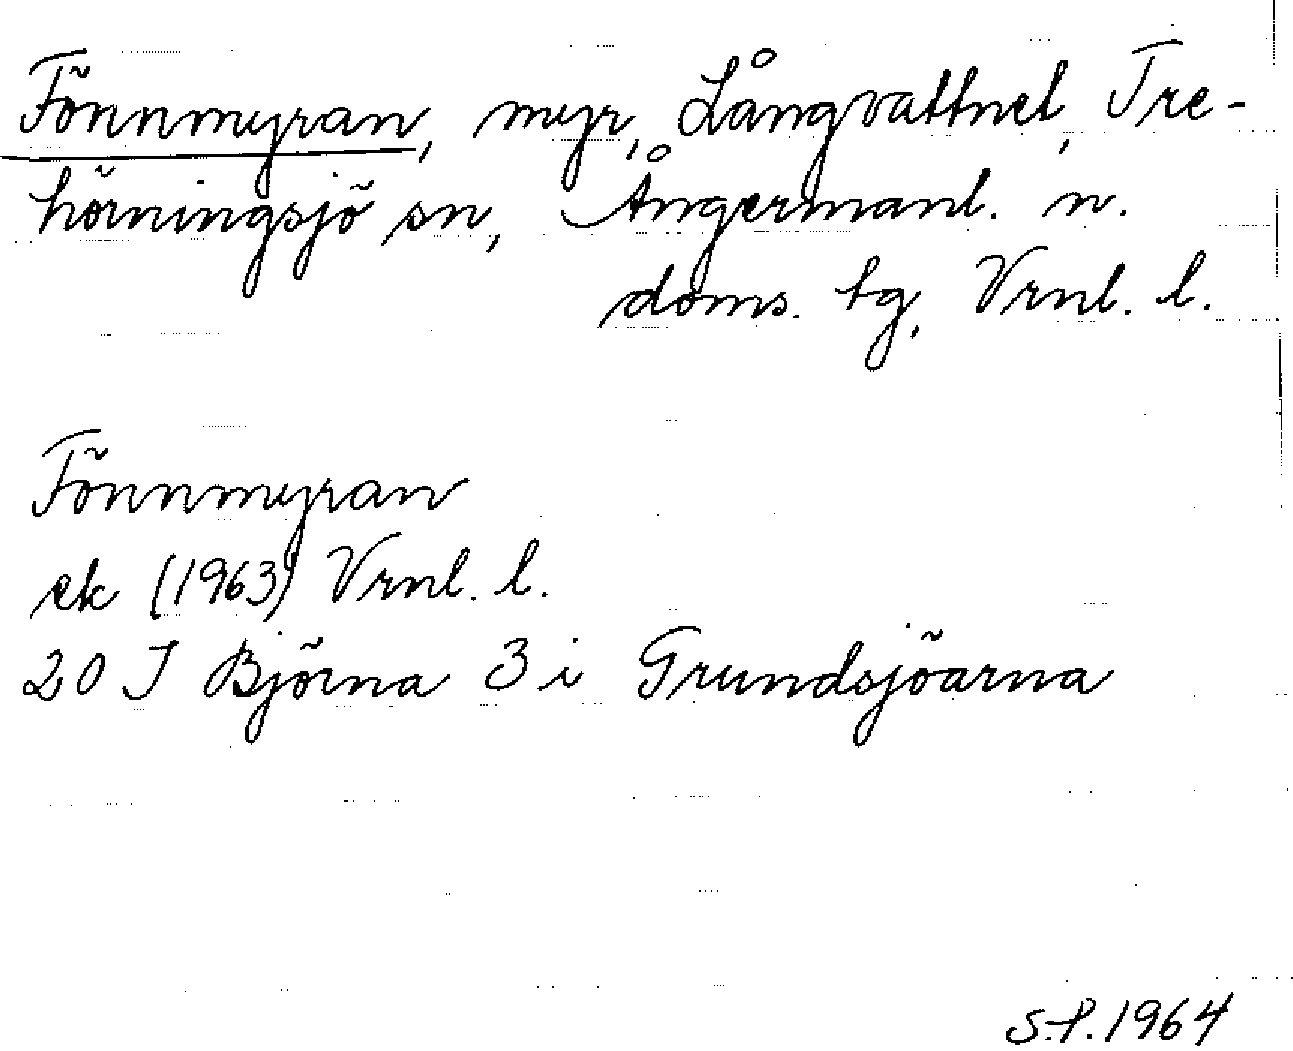 Fönnmyran, myr, Långvattnet, Tre-
hörningsjö sn, Ångermanl. n.
doms. tg, Vrnl. l.
Fönnmyran
ek (1963) Vrnl. l.
20 I Björna 3 i Grundsjöarna
S.P. 1964